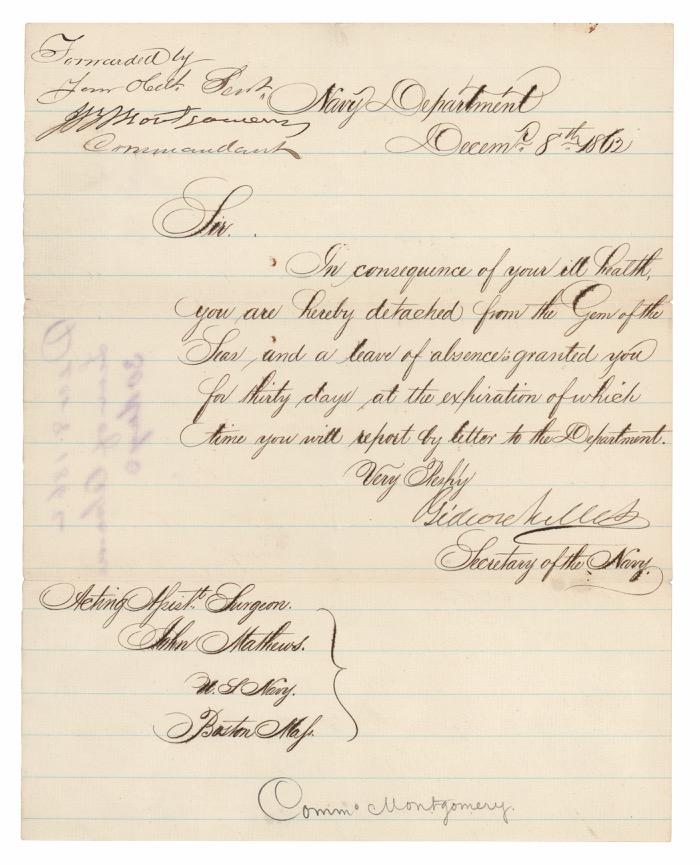 Forwarded by
Your Obt. Servt.
J B Montgomery
Commandant
Navy Department
Decemr. 8th. 1862
Sir.
In consequence of your ill health,
you are hereby detached from the Gem of the
Seas, and a leave of absence is granted you
for thirty days, at the expiration of which
time you will report by letter to the Department.
Very Respy
Gideon Welles
Secretary of the Navy.
Acting Assistt. Surgeon.
John Mathews.
U. S. Navy.
Boston Mass.
Commo Montgomery.
30 days
Leave of Absence
Dec 8. 1862